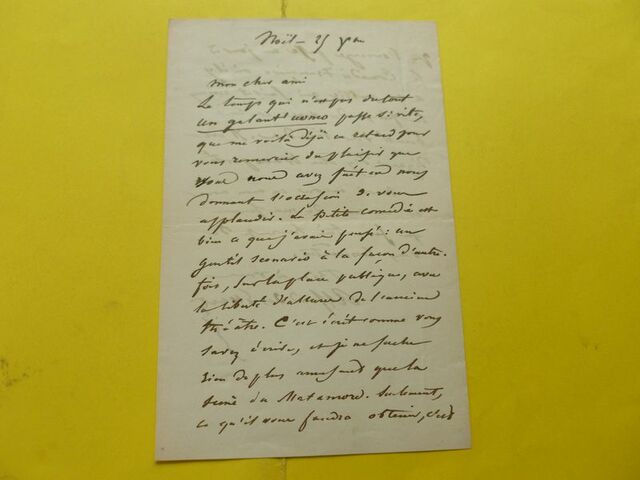 Noël - 25 Xbre
mon cher ami
Le temps qui n'est pas du tout
un galant'uomo passe si vite,
que me voilà déjà en retard pour
vous remercier du plaisir que
vous nous avez fait en nous
donnant l'occasion de vous
applaudir. La petite comédie est
bien ce que j'avais pensé : un
gentil scenario à la façon d'autre-
fois, sur la place publique, avec
la liberté d'allure de l'ancien
théâtre. C'est écrit comme vous
savez écrire, et je ne sache
rien de plus amusant que la
scène du Matamore. Seulement,
ce qu'il vous faudra obtenir, c'est